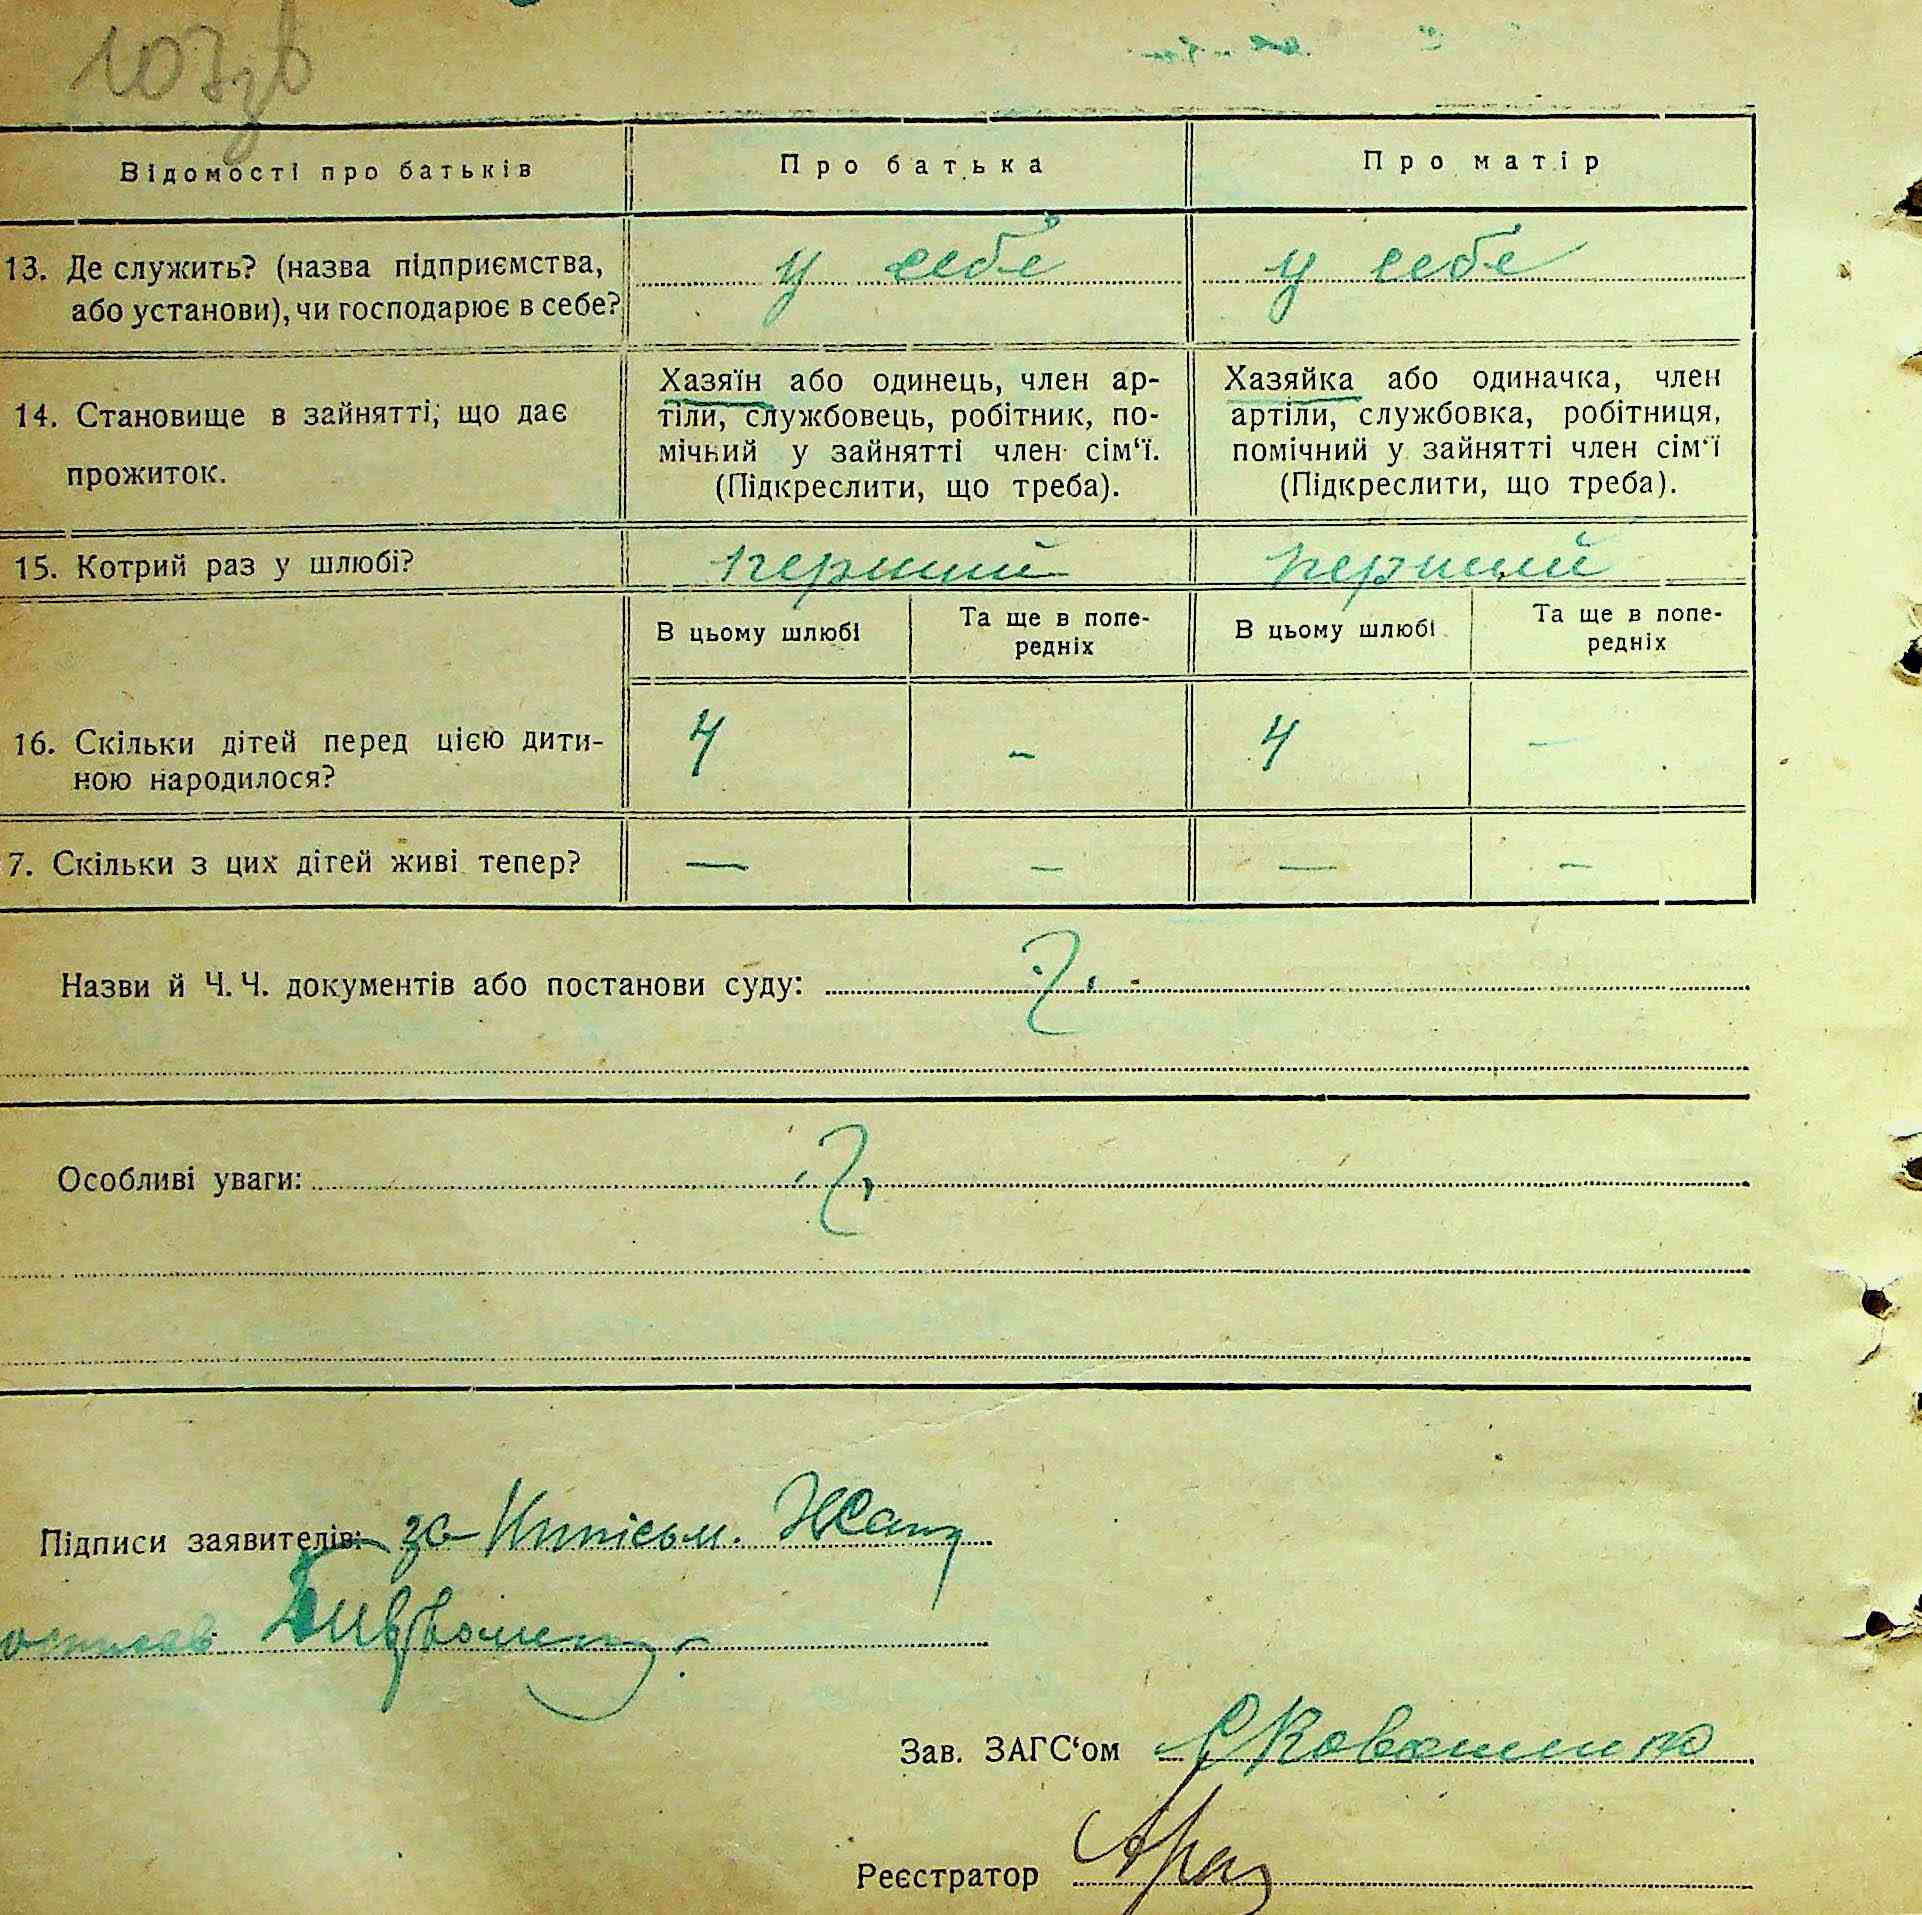 107зв
Відомості про батьків
Про батька
Про матір
13. Де служить? (назва підприємства,
або установи), чи господарює в себе?
у себе
у себе
14. Становище в зайнятті, що дає
прожиток.
Хазяїн або одинець, член ар-
тіли, службовець, робітник, по-
мічний у зайнятті член сім‘ї.
(Підкреслити, що треба).
Хазяйка або одиначка, член
артіли, службовка, робітниця,
помічний у зайнятті член сім‘ї
(Підкреслити, що треба).
15. Котрий раз у шлюбі?
перший
перший
В цьому шлюбі
Та ще в попе-
редніх
В цьому шлюбі
Та ще в попе-
редніх
16. Скільки дітей перед цією дити-
ною народилося?
4
-
4
-
7. Скільки з цих дітей живі тепер?
—
-
—
-
Назви й Ч. Ч. документів або постанови суду:
Особливі уваги:
Підписи заявителів: за
Зав. ЗАГС‘ом
Реєстратор